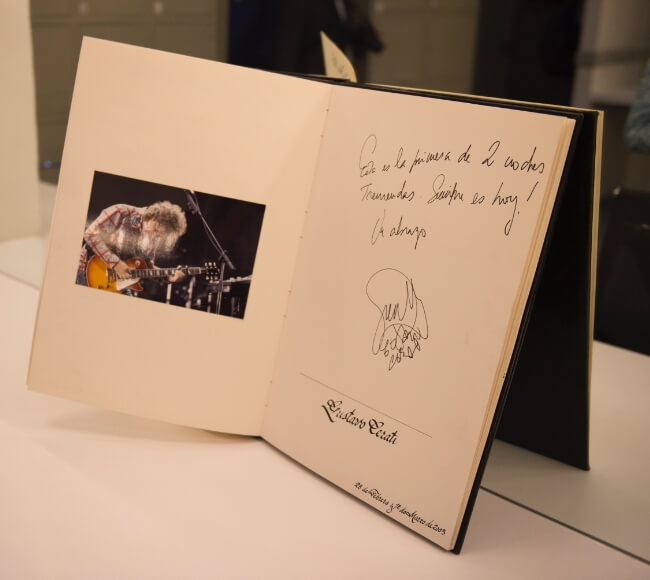 Esta es la primera de 2 noches
Tremendas. Siempre es hoy!
Un abrazo
Gustavo Cerati
28 de Febrero y 1º de Marzo de 2003